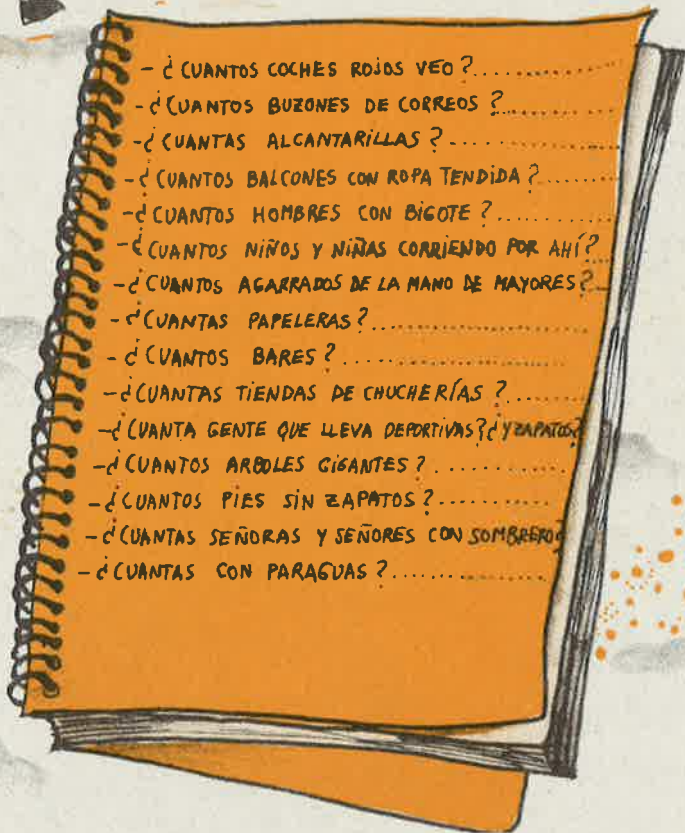 - ¿CUANTOS COCHES ROJOS VEO?..............
- ¿CUANTOS BUZONES DE CORREOS?............
- ¿CUANTAS ALCANTARILLAS?.................
- ¿CUANTOS BALCONES CON ROPA TENDIDA?.......
- ¿CUANTOS HOMBRES CON BIGOTE?...........
- ¿CUANTOS NIÑOS Y NIÑAS CORRIENDO POR AHÍ?
- ¿CUANTOS AGARRADOS DE LA MANO DE MAYORES?..
- ¿CUANTAS PAPELERAS?......................
- ¿CUANTOS BARES?......................
- ¿CUANTAS TIENDAS DE CHUCHERÍAS?..........
- ¿CUANTA GENTE QUE LLEVA DEPORTIVAS? ¿Y ZAPATOS?
- ¿CUANTOS ARBOLES GIGANTES?............
- ¿CUANTOS PIES SIN ZAPATOS?..........
- ¿CUANTAS SEÑORAS Y SEÑORES CON SOMBRERO?
- ¿CUANTAS CON PARAGUAS?.................